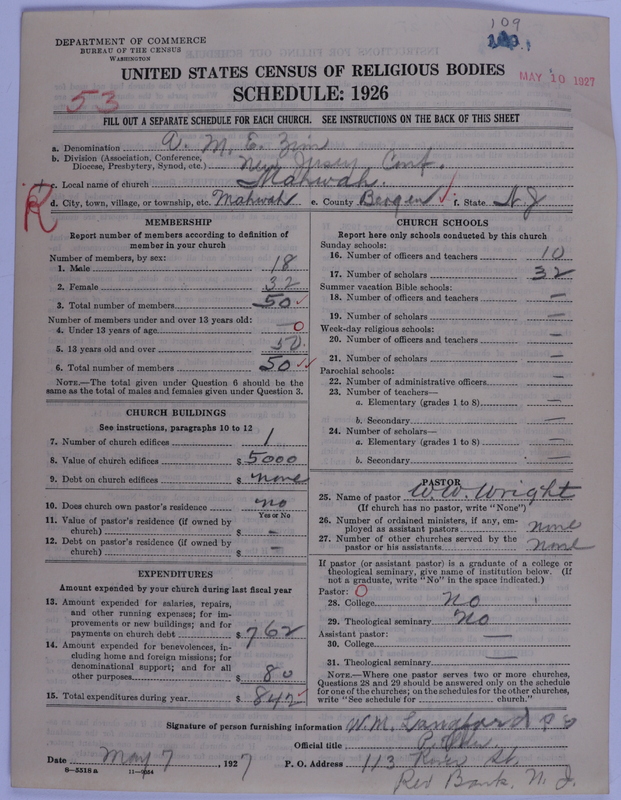 109
DEPARTMENT OF COMMERCE
BUREAU OF THE CENSUS
WASHINGTON
UNITED STATES CENSUS OF RELIGIOUS BODIES
MAY 10 1927
SCHEDULE: 1926
53
FILL OUT A SEPARATE SCHEDULE FOR EACH CHURCH. SEE INSTRUCTIONS ON THE BACK OF THIS SHEET
a. Denomination A. M. E. Zion
b. Division (Association, Conference, Diocese, Presbytery, Synod, etc.) New Jersey Conf.
c. Local name of church Mahwah.
R
d. City, town, village, or township, etc. Mahwah e. County Bergen f. State N. J
MEMBERSHIP
Report number of members according to definition of
member in your church
Number of members, by sex:
1. Male 18
2. Female 32
3. Total number of members 50
Number of members under and over 13 years old:
4. Under 13 years of age — 0
5. 13 years old and over 50
6. Total number of members 50
NOTE.—The total given under Question 6 should be the
same as the total of males and females given under Question 3.
CHURCH BUILDINGS
See instructions, paragraphs 10 to 12
7. Number of church edifices 1
8. Value of church edifices $ 5000
9. Debt on church edifices $ none
10. Does church own pastor's residence no
Yes or No
11. Value of pastor's residence (if owned by
church) $ —
12. Debt on pastor's residence (if owned by
church) $ —
EXPENDITURES
Amount expended by church during last fiscal year
13. Amount expended for salaries, repairs,
and other running expenses; for im-
provements or new buildings; and for
payments on church debt $ 762
14. Amount expended for benevolences, in-
cluding home and foreign missions; for
denominational support; and for all
other purposes $ 80
15. Total expenditures during year $ 842
CHURCH SCHOOLS
Report here only schools conducted by this church
Sunday schools:
16. Number of officers and teachers 10
17. Number of scholars 32
Summer vacation Bible schools:
18. Number of officers and teachers —
19. Number of scholars —
Week-day religious schools:
20. Number of officers and teachers —
21. Number of scholars —
Parochial schools:
22. Number of administrative officers —
23. Number of teachers—
a. Elementary (grades 1 to 8) —
b. Secondary —
24. Number of scholars—
a. Elementary (grades 1 to 8) —
b. Secondary —
PASTOR
25. Name of pastor W. W. Wright
(If church has no pastor, write "None")
26. Number of ordained ministers, if any, em-
ployed as assistant pastors none
27. Number of other churches served by the
pastor or his assistants None
If pastor (or assistant pastor) is a graduate of a college or
theological seminary, give name of institution below. (If
not a graduate, write "No" in the space indicated.)
Pastor: O
28. College No
29. Theological seminary No
Assistant pastor:
30. College —
31. Theological seminary —
NOTE.—Where one pastor serves two or more churches,
Questions 28 and 29 should be answered only on the schedule
for one of the churches; on the schedules for the other churches,
write "See schedule for church."
Signature of person furnishing information W. M. Langford
Official title
Date May 7, 1927 P. O. Address 113 River St.
8—5518a 11—9064
Red Bank, N. J.